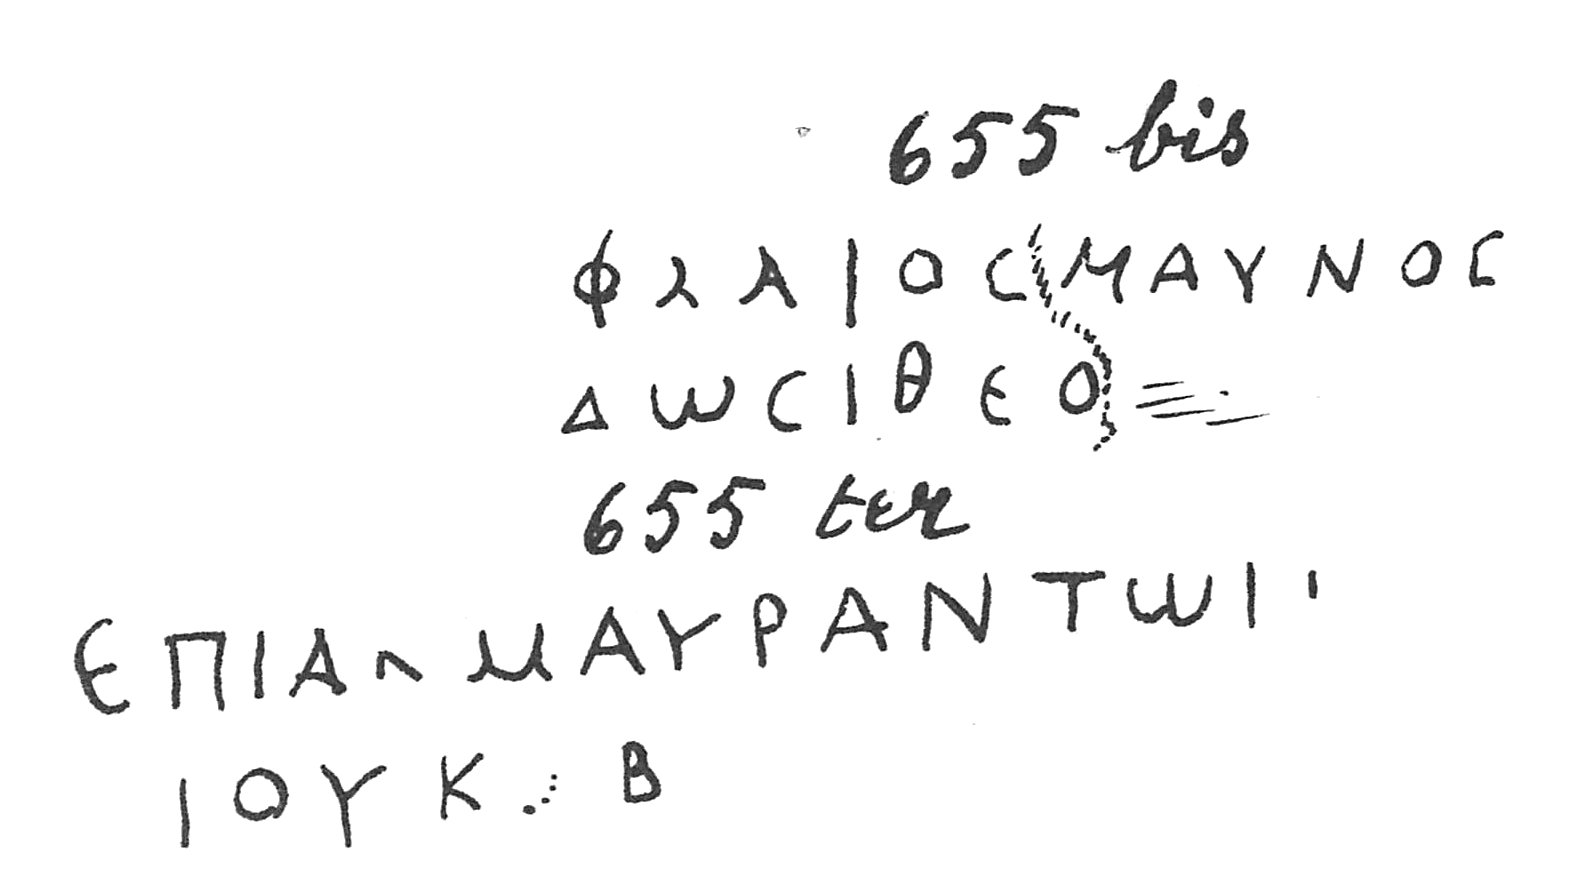 655 bis
ΦλΑΙΟC ΜΑΥΝΟC
ΔωCΙΘΕΟ
655 ter
ЄΠΙΑΛΜΑΥΡΑΝΤωΙ
ΙΟΥΚ Β